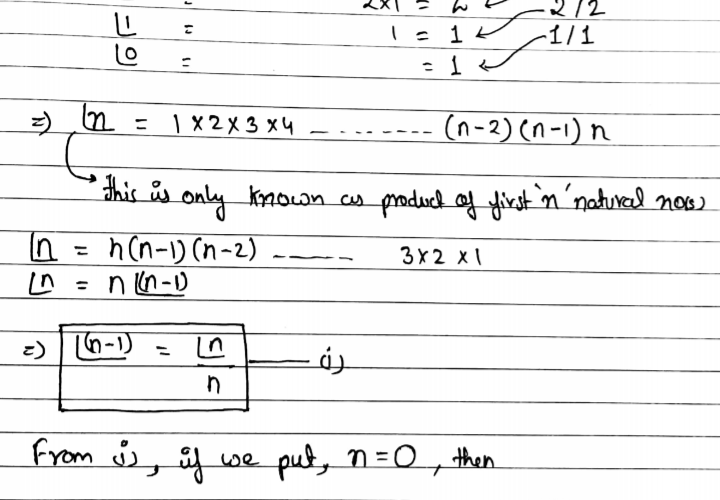 2x1 = 2 2/2
⌊1 = 1 = 1 1/1
⌊0 = = 1
=) ⌊n = 1 x 2 x 3 x 4 -------- (n-2) (n-1) n
this is only known as product of first 'n' natural nos)
⌊n = n(n-1) (n-2) ----- 3x2 x1
⌊n = n ⌊(n-1)
=) ⌊(n-1) = ⌊n / n —— i)
From i), if we put, n=0, then